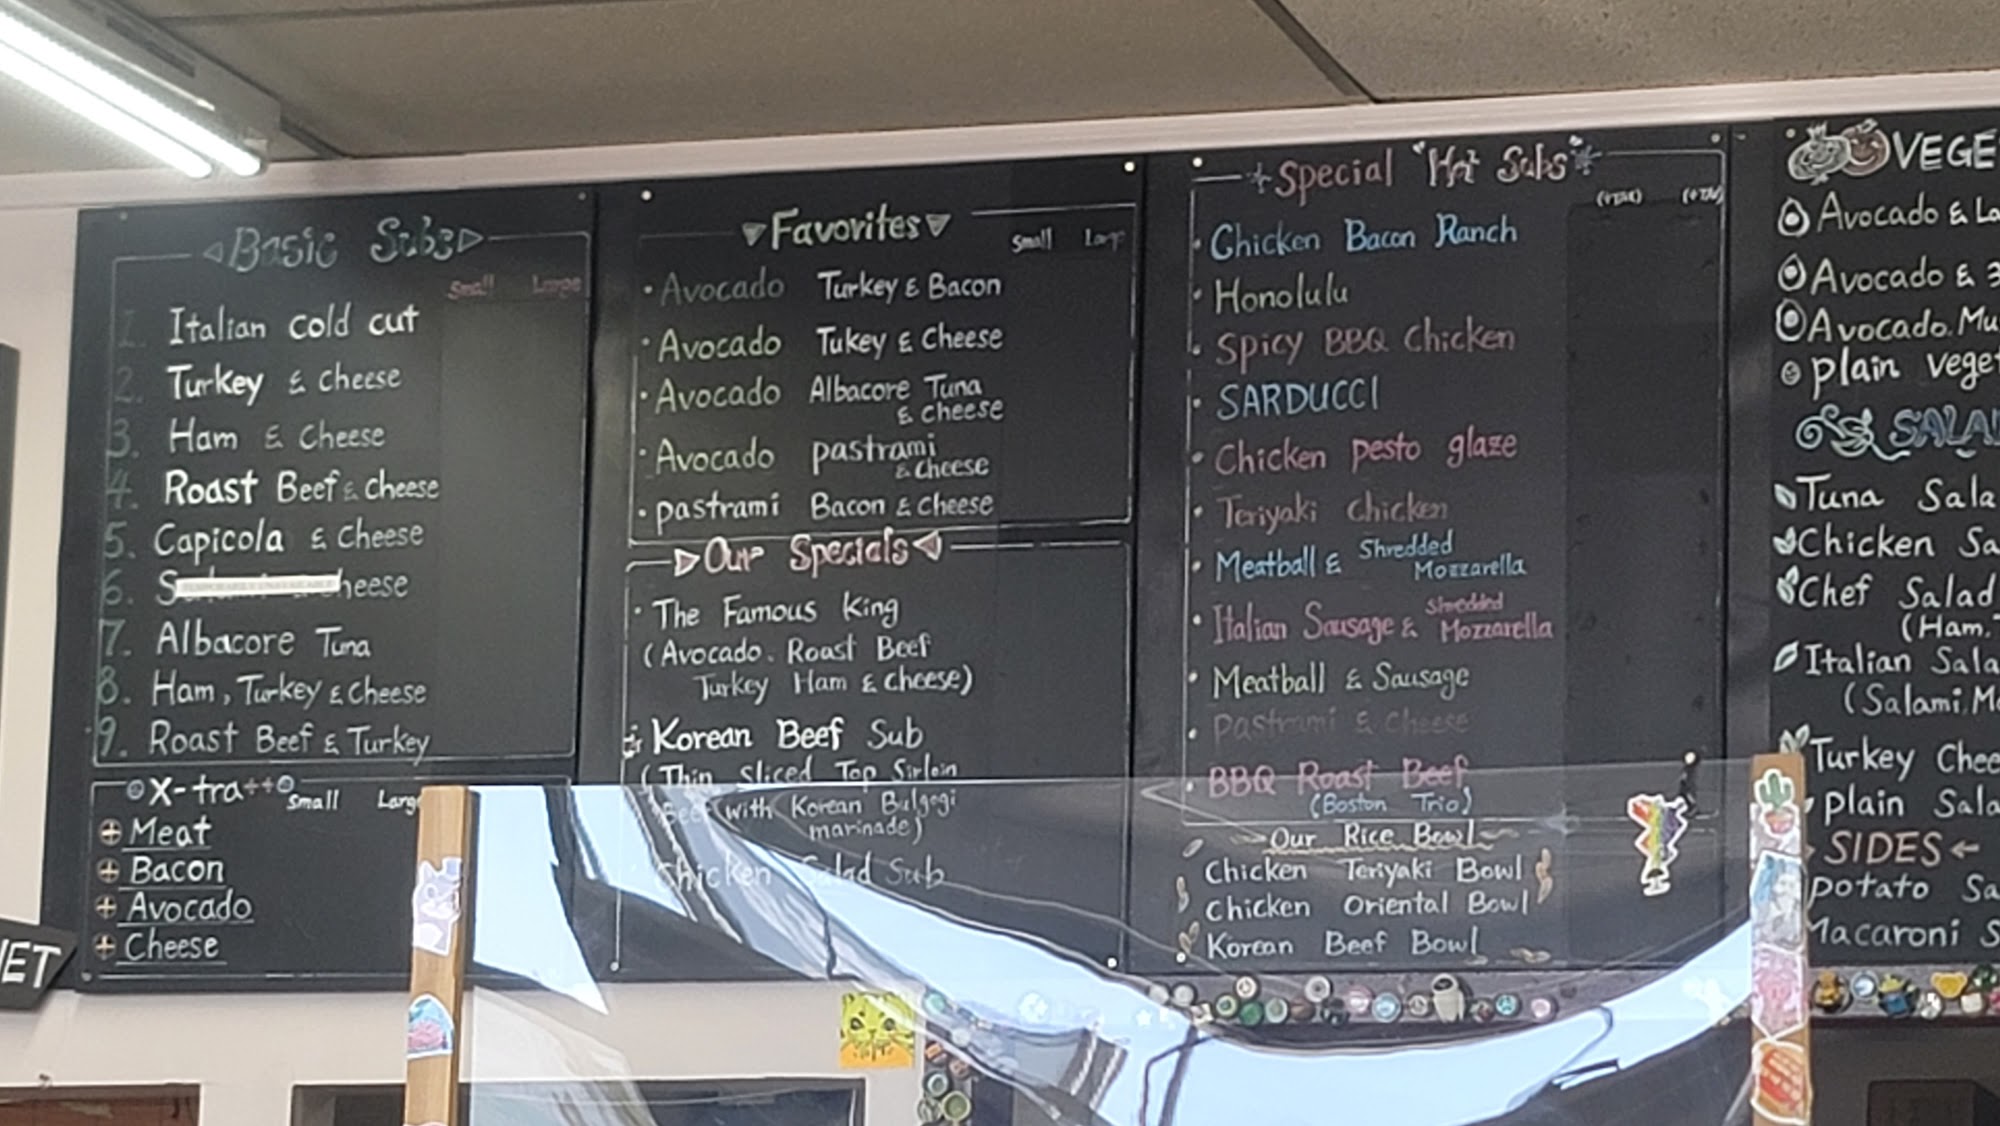 Basic Subs
Small Large
1. Italian cold cut
2. Turkey & cheese
3. Ham & Cheese
4. Roast Beef & cheese
5. Capicola & Cheese
6. S heese
7. Albacore Tuna
8. Ham, Turkey & cheese
9. Roast Beef & Turkey
X-tra++ Small Larg
+ Meat
+ Bacon
+ Avocado
+ Cheese
ET
Favorites
Small Larg
• Avocado Turkey & Bacon
• Avocado Tukey & Cheese
• Avocado Albacore Tuna
& cheese
• Avocado pastrami
& cheese
• pastrami Bacon & cheese
Our Specials
• The Famous King
(Avocado. Roast Beef
Turkey Ham & cheese)
Korean Beef Sub
(Thin sliced Top Sirloin
Beef with Korean Bulgogi
marinade)
• Chicken Salad Sub
Special "Hot Subs"
(+TAX) (+TAX)
• Chicken Bacon Ranch
• Honolulu
• Spicy BBQ Chicken
• SARDUCCI
• Chicken pesto glaze
• Teriyaki chicken
• Meatball & Shredded
Mozzarella
• Italian Sausage & Shredded
Mozzarella
• Meatball & Sausage
• Pastrami & cheese
• BBQ Roast Beef
(Boston Trio)
Our Rice Bowl
Chicken Teriyaki Bowl
Chicken Oriental Bowl
Korean Beef Bowl
VEGE
Avocado & La
Avocado & 3
Avocado. Mu
plain veget
SALA
Tuna Sala
Chicken Sa
Chef Salad
(Ham. T
Italian Sala
(Salami. Mo
Turkey Chee
plain Sala
SIDES
potato Sa
Macaroni S